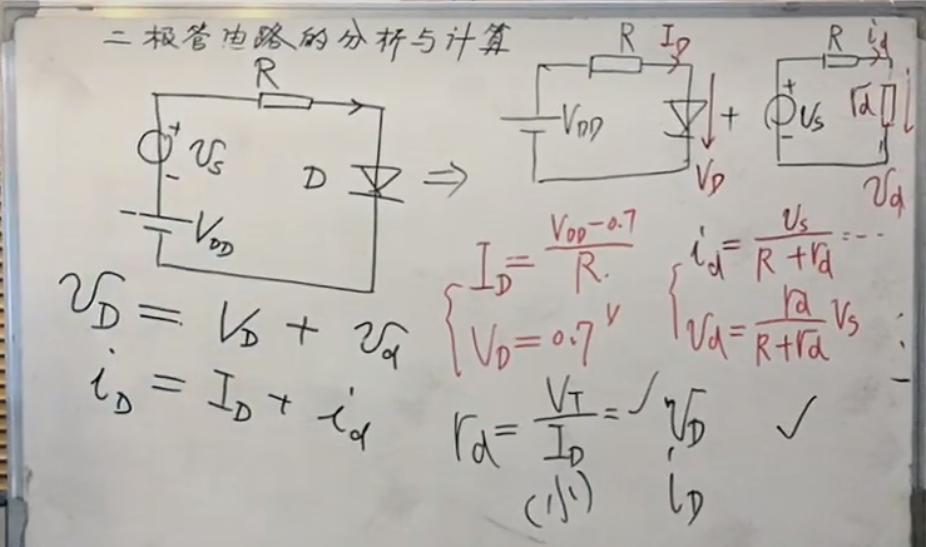 二极管电路的分析与计算
R
+
υs
-
VDD
D
⇒
R
ID
VDD
VD
+
R
id
+
υs
-
rd
υd
υD = VD + υd
iD = ID + id
ID = (VDD-0.7)/R
VD = 0.7V
id = υs/(R+rd) = ...
υd = rd/(R+rd) Vs
rd = VT/ID = ✓
(小)
υD
iD
✓